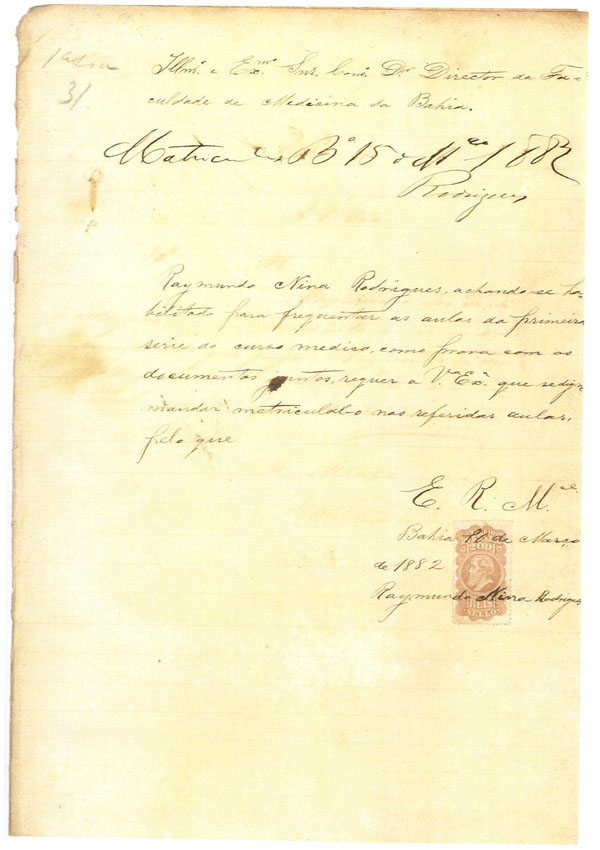 1ª Serie
31
Illmº. e Exmº. Snr. Conº. Dr. Director da Fa-
culdade de Medicina da Bahia.
Bª 15 de Mço 1882
Rodrigues
Raymundo Nina Rodrigues, achando-se ha-
bilitado para frequentar as aulas da primeira
serie do curso medico, como prova com os
documentos juntos, requer a V.ª Ex.ª que se digne
mandar matriculal-o nas referidas aulas,
pelo que
E. R. M.ce
Bahia de Março
de 1882
Raymundo Nina Rodrigues
200
REIS
SELLO